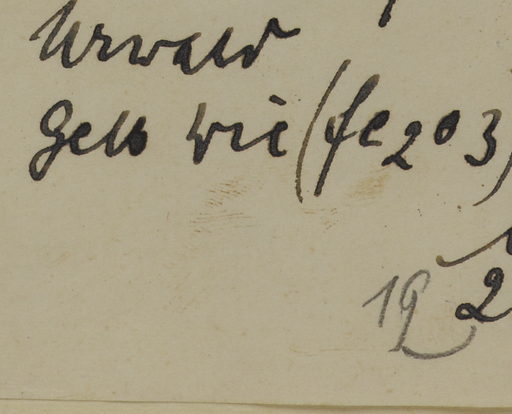 Urwald
Gelb wie (fe2o3)
19 2